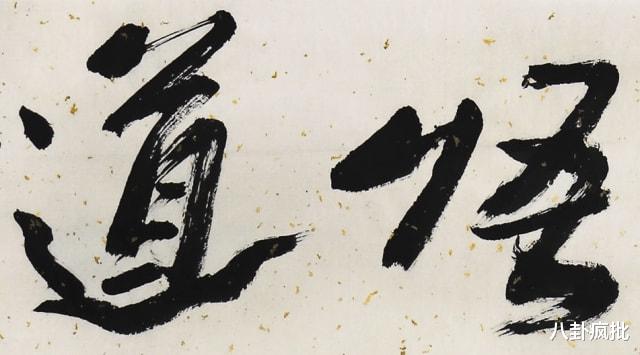 悟道
八卦疯批